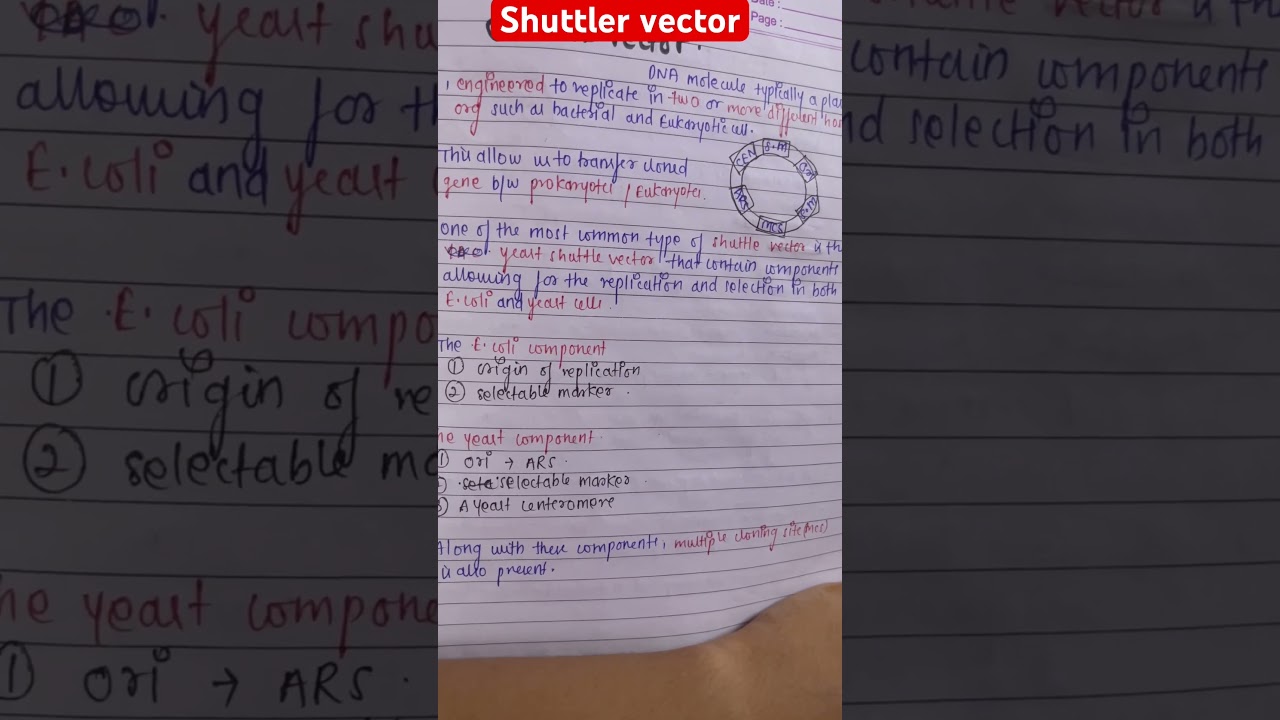 Shuttler vector
Date :
Page :
vector.
DNA molecule typically a pla
, engineered to replicate in two or more different hos
org such as bacterial and Eukaryotic cell.
This allow us to transfer cloned
gene b/w prokaryotes / Eukaryotes.
CEN
S.M
ori
S.M
MCS
ARS
one of the most common type of shuttle vector is th
yeast shuttle vector that contain components
allowing for the replication and selection in both
E.coli and yeast cells.
The E. coli component
① origin of replication
② selectable marker.
he yeast component.
① ori → ARS.
selectable marker.
③ A yeast centeromere
Along with these components, multiple cloning site (MCS)
is also present.
yeast shu
allowing for th
E.coli and yeast
The E. coli compo
① origin of re
② selectable ma
he yeast compone
① ori → ARS.
contain components
nd selection in both